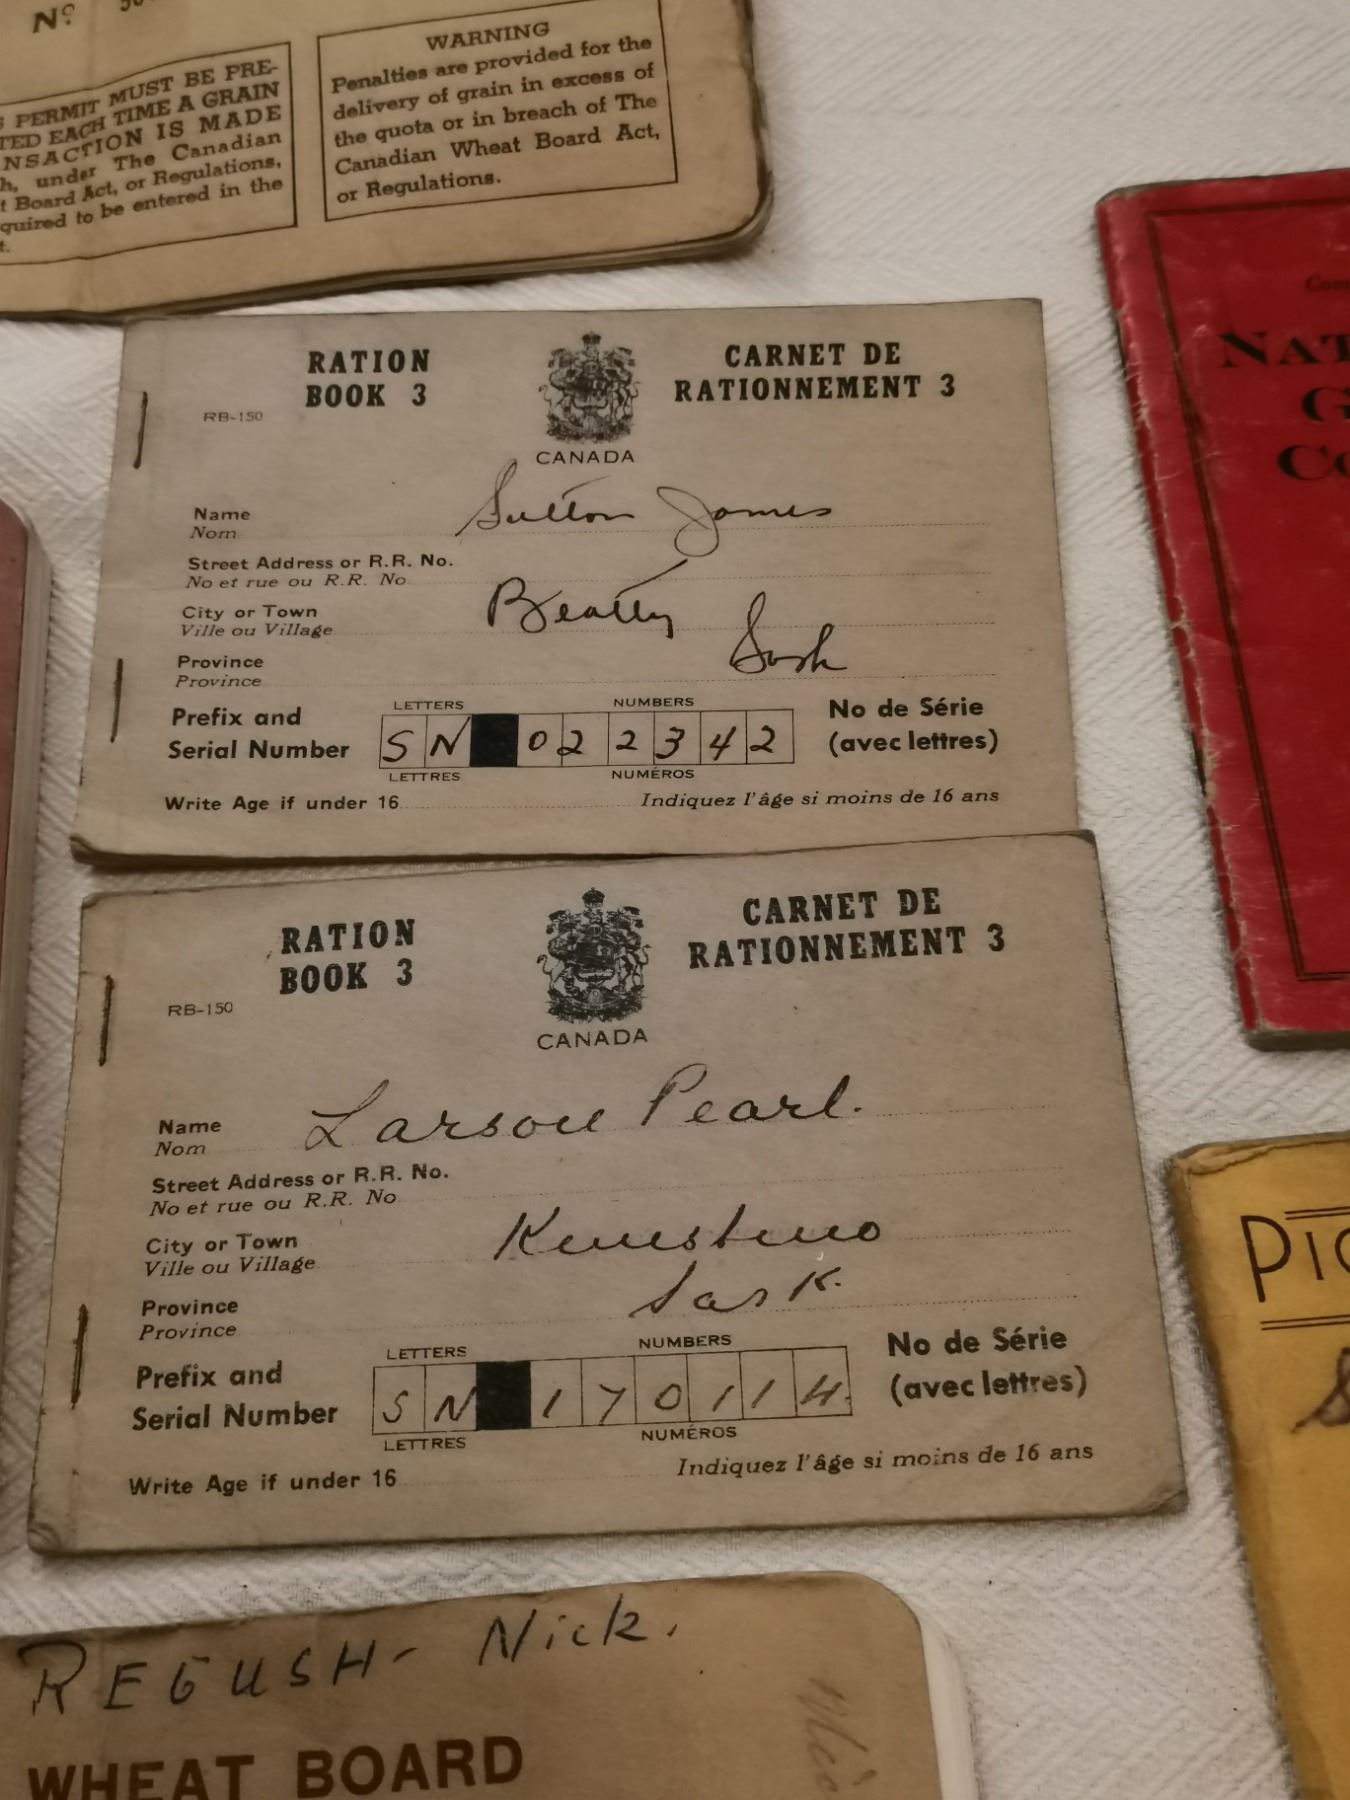 Nº
PERMIT MUST BE PRE-
TED EACH TIME A GRAIN
NSACTION IS MADE
h, under The Canadian
t Board Act, or Regulations,
quired to be entered in the
t.
WARNING
Penalties are provided for the
delivery of grain in excess of
the quota or in breach of The
Canadian Wheat Board Act,
or Regulations.
RATION
BOOK 3
RB-150
CANADA
CARNET DE
RATIONNEMENT 3
Name Sutton James
Nom
Street Address or R.R. No.
No et rue ou R.R. No
City or Town Beatty
Ville ou Village
Province Sask
Province
LETTERS NUMBERS
Prefix and
Serial Number SN 022342
No de Série
(avec lettres)
LETTRES NUMÉROS
Write Age if under 16 Indiquez l'âge si moins de 16 ans
RATION
BOOK 3
RB-150
CANADA
CARNET DE
RATIONNEMENT 3
Name Larson Pearl.
Nom
Street Address or R.R. No.
No et rue ou R.R. No
City or Town Kinistino
Ville ou Village
Province Sask.
Province
LETTERS NUMBERS
Prefix and
Serial Number SN 170114
No de Série
(avec lettres)
LETTRES NUMÉROS
Write Age if under 16 Indiquez l'âge si moins de 16 ans
REGUSH- Nick.
WHEAT BOARD
NAT
G
Co
PIC